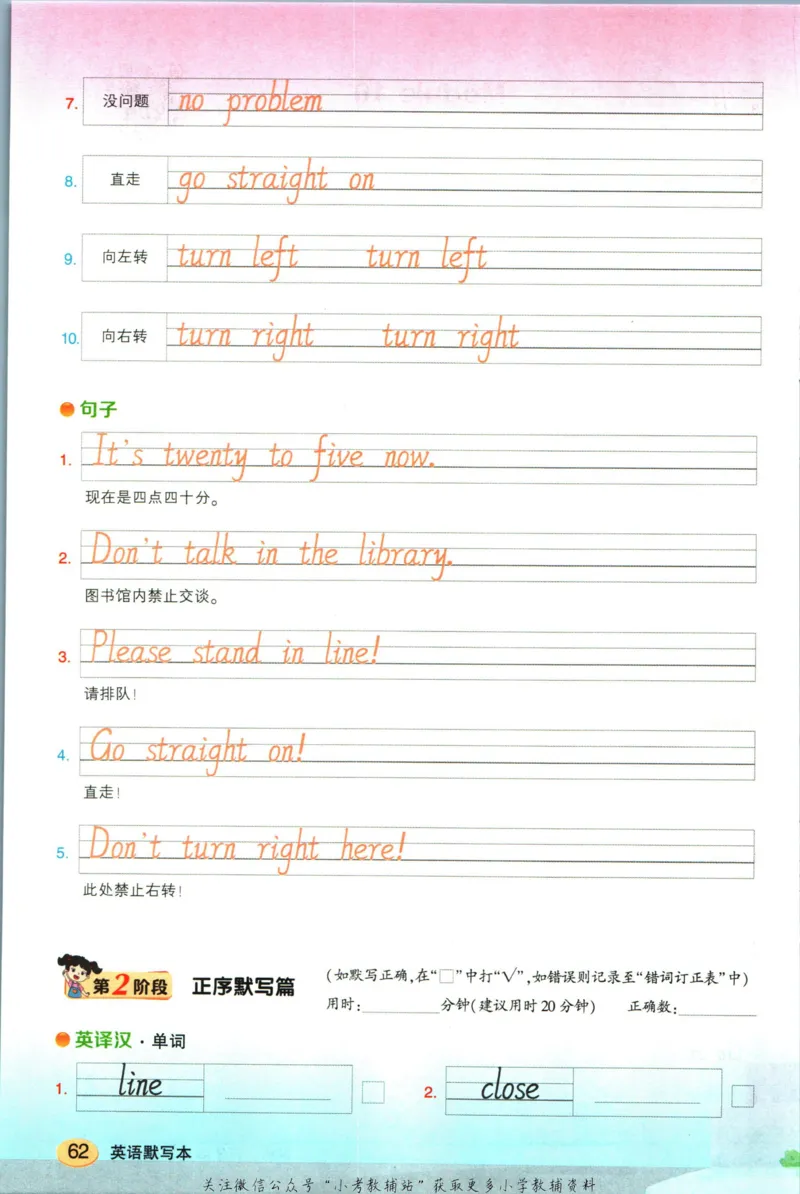 7. 没问题 no problem
8. 直走 go straight on
9. 向左转 turn left turn left
10. 向右转 turn right turn right
句子
1. It's twenty to five now.
现在是四点四十分。
2. Don't talk in the library.
图书馆内禁止交谈。
3. Please stand in line!
请排队!
4. Go straight on!
直走!
5. Don't turn right here!
此处禁止右转!
第2阶段 正序默写篇 (如默写正确,在“□”中打“√”,如错误则记录至“错词订正表”中)
用时:________分钟(建议用时20分钟) 正确数:________
英译汉·单词
1. line ________ □ 2. close ________ □
62 英语默写本
关注微信公众号“小考教辅站”获取更多小学教辅资料